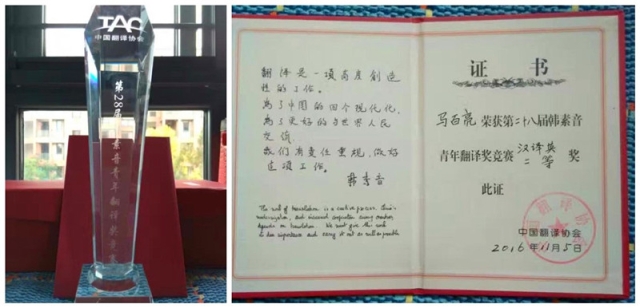 TAC
中国翻译协会
第28届韩素音青年翻译奖竞赛
翻译是一项高度创造
性的工作。
为了中国的四个现代化,
为了更好的与世界人民
交流,
我们有责任重视,做好
这项工作。
韩素音
The work of translation is a creative process. China's
modernization, and increased cooperation among mankind,
depends on translation. We must give this work
its due importance and carry it out as well as possible
证书
马百亮 荣获第二十八届韩素音
青年翻译奖竞赛 汉译英
二等 奖
此证
中国翻译协会
2016年11月5日